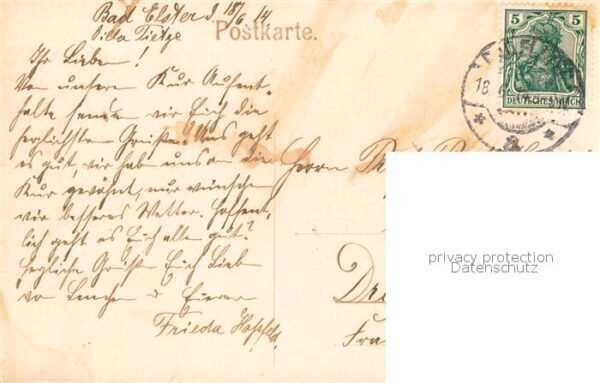 Bad Elster d. 18/6. 14.
Villa Tietze
Postkarte.
Ihr Lieben!
Von unserem Kur Aufent-
halte senden wir Euch die
herzlichsten Grüße. Uns geht
es gut, wir hab uns an die
Kur gewöhnt, nur wünschen
wir besseres Wetter. Hoffent-
lich geht es Euch allen gut?
Herzliche Grüße Euch Lieben
von Lenchen d Eurer
Frieda
Herrn
Dre
Fra
5 5
DEUTSCHES REICH
BAD ELSTER
18
a
privacy protection
Datenschutz